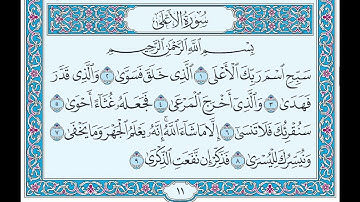 سُورَةُ الأَعْلَى
بِسْمِ اللَّهِ الرَّحْمَٰنِ الرَّحِيمِ
سَبِّحِ اسْمَ رَبِّكَ الْأَعْلَى ١ الَّذِي خَلَقَ فَسَوَّىٰ ٢ وَالَّذِي قَدَّرَ
فَهَدَىٰ ٣ وَالَّذِي أَخْرَجَ الْمَرْعَىٰ ٤ فَجَعَلَهُ غُثَاءً أَحْوَىٰ ٥
سَنُقْرِئُكَ فَلَا تَنسَىٰ ٦ إِلَّا مَا شَاءَ اللَّهُ إِنَّهُ يَعْلَمُ الْجَهْرَ وَمَا يَخْفَىٰ ٧
وَنُيَسِّرُكَ لِلْيُسْرَىٰ ٨ فَذَكِّرْ إِن نَّفَعَتِ الذِّكْرَىٰ ٩
١١